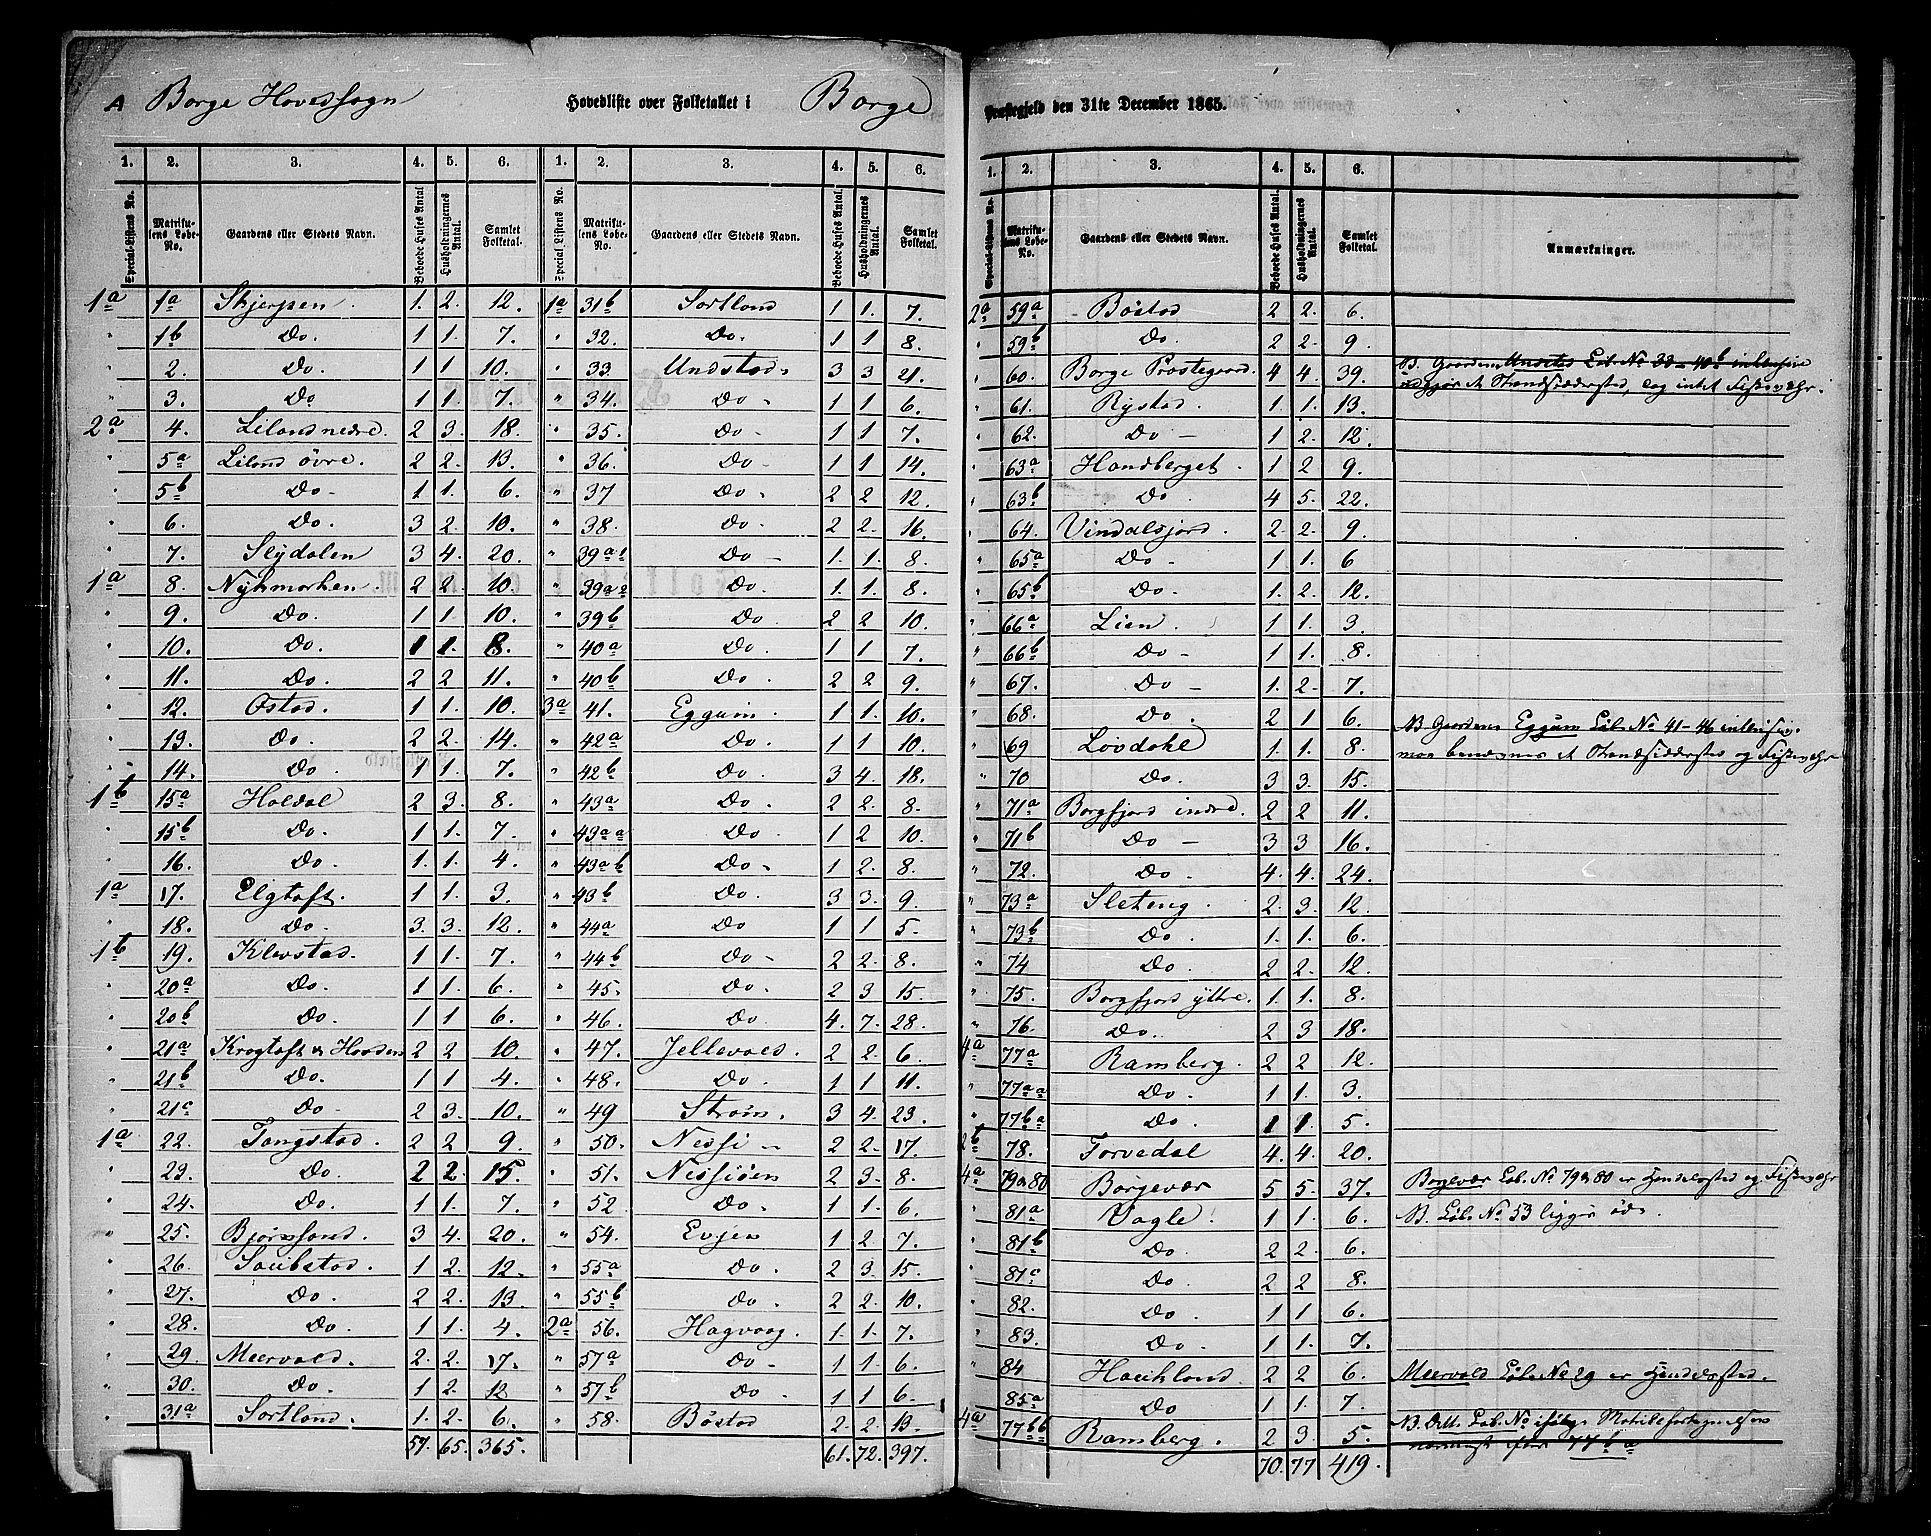 A Borge Hovedsogn Hovedliste over Folketallet i Borge Præstegjeld den 31te December 1865.
1. 2. 3. 4. 5. 6. 1. 2. 3. 4. 5. 6. 1. 2. 3. 4. 5. 6.
Special-Listens No. Matrikulens Løbe-No. Gaardens eller Stedets Navn. Beboede Huses Antal Husholdningernes Antal. Samlet Folketal. Special-Listens No. Matrikulens Løbe-No. Gaardens eller Stedets Navn. Beboede Huses Antal. Husholdningernes Antal. Samlet Folketal. Special-Listens No. Matrikulens Løbe-No. Gaardens eller Stedets Navn. Beboede Huses Antal. Husholdningernes Antal. Samlet Folketal. Anmærkninger.
1a 1a Skjerpen 1. 2. 12. 1a 31b Sortland 1 1. 7. 2a 59a Bøstad 2 2. 6.
" 1b Do. 1 1. 7. " 32. Do. 1 1 8. " 59b Do. 2 2. 9.
" 2. Do. 1 1. 10. " 33. Undstad 3 3 21. " 60. Borge Præstegaard. 4 4. 39. NB. Gaarden Unstad Løb. No 33-40b inklusive
" 3. Do 1 1. 7. " 34. Do 1 1 6. " 61. Rystad. 1. 1. 13. udgjør et Strandsiddersted, og intet Fiskevær.
2a 4. Leland nedre. 2 3. 18. " 35. Do 1 1 7. " 62. Do 1 2. 12.
" 5a Leland øvre. 2 2. 13. " 36. Do 1 1 14. " 63a Handberget. 1 2 9.
" 5b Do 1 1. 6. " 37 Do 2 2 12. " 63b Do 4 5. 22.
" 6. Do. 3 2. 10. " 38. Do. 2 2. 16. " 64. Vindalsjord. 2 2. 9.
" 7. Slydalen 3 4. 20. " 39a1 Do 1. 1. 8. " 65a Do 1 1. 6
1a 8. Nykmarken. 2 2. 10. " 39a2 Do. 1. 1. 8. " 65b Do. 1. 2. 12.
" 9. Do. 1 1. 10. " 39b Do 2 2 10. " 66a Lien. 1 1. 3.
" 10. Do. 1 1. 8. " 40a Do 1 1. 7. " 66b Do 1 1. 8.
" 11. Do. 2 2 11. " 40b Do. 2 2 9. " 67. Do 1. 2. 7.
" 12. Ostad. 1 1. 10. 3a 41. Eggum 1 1. 10. " 68. Do. 2 1 6. NB Gaarden Eggum Løb. No 41-46 inklusive.
" 13. Do. 2 2. 14. " 42a Do. 1 1 10. " 69 Løvdahl 1. 1. 8. maa benævnes et Strandsiddersted og Fiskevær
" 14. Do. 1 1. 7. " 42b Do. 3 4. 18. " 70 Do. 3 3. 15.
1b 15a Haldal 2 3. 8. " 43a Do. 2 2. 8. " 71a Borgfjord indre. 2 2 11.
" 15b Do. 1 1. 7. " 43aa Do. 1 2 10. " 71b Do 3 3 16.
" 16. Do. 1 1. 4. " 43ab Do 1 2. 8. " 72. Do. 4. 4. 24.
1a 17. Elgtoft. 1 1. 3. " 43b Do. 3 3. 9. " 73a Sleteng. 2. 3. 12.
" 18. Do. 3. 3. 12. " 44a Do 1 1 5. " 73b Do. 1. 1. 6.
1b 19. Klevstad. 1 1. 7. " 44b Do 2 2. 8. " 74 Do. 2 2. 12.
" 20a Do. 1 1. 6. " 45. Do. 2 3 15. " 75. Borgfjord ytre. 1. 1. 8.
" 20b Do. 1 1 6. " 46. Do 4. 7. 28. " 76. Do. 2 3 18.
" 21a Krogtoft & Hovden 2 2 10. " 47. Jellevold. 2 2. 6. 4a 77a Ramberg. 2 2 12.
" 21b Do. 1 1 4. " 48. Do. 1 1 11. " 77aa Do. 1 1. 3.
" 21c Do 2 3. 10. " 49 Strøm. 3 4. 23. " 77ba Do. 1 1. 5.
1a 22. Tangstad. 2 2 9. " 50. Nessi 2 2. 17. 2b 78. Torvedal 4. 4. 20.
" 23. Do. 2 2. 15. " 51. Nessiøen 2 3. 8. 4a 79 & 80 Borgevær 5 5. 37. Borgevær Løb. No 79 & 80 er Handelssted og Fiskevær
" 24. Do. 1 1. 7. " 52 Do. 1 1. 6. " 81a Vagle. 1 1. 6. NB. Løb. No 53 ligger øde.
" 25. Bjørnsand. 3 4. 20. " 54. Evjen 1 2. 7. " 81b Do. 2 2. 6.
" 26. Saubstad. 1 2. 12. " 55a Do. 2 3. 15. " 81c Do. 2 2 8.
" 27. Do. 2 2. 13. " 55b Do. 2 2. 10. " 82. Do. 1 1 6.
" 28. Do. 1 1. 4. 2a 56. Hagvaag. 1. 1. 7. " 83. Do. 1 1. 7.
" 29. Meervold. 2. 2. 17. " 57a Do 1 1 6. " 84 Haukland. 2 2 6. Meervold Løb. No 29 er Handelssted.
" 30. Do. 1 2. 12 " 57b Do. 1 1 6. " 85a Do 1 1. 7.
" 31a Sortland. 1. 2. 6. " 58. Bøstad 2. 2. 19. 4a 77bb Ramberg. 2 3. 5.
57. 65. 365. 61. 72. 397. 70. 77 419.